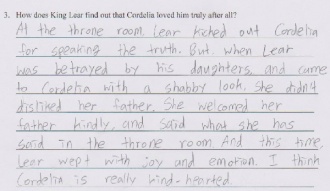 3. How does King Lear find out that Cordelia loved him truly after all?
At the throne room, Lear kicked out Cordelia
for speaking the truth. But, when Lear
was betrayed by his daughters, and came
to Cordelia with a shabby look, she didn't
disliked her father. She welcomed her
father kindly, and said what she has
said in the throne room. And this time,
Lear wept with joy and emotion. I think
Cordelia is really kind-hearted.